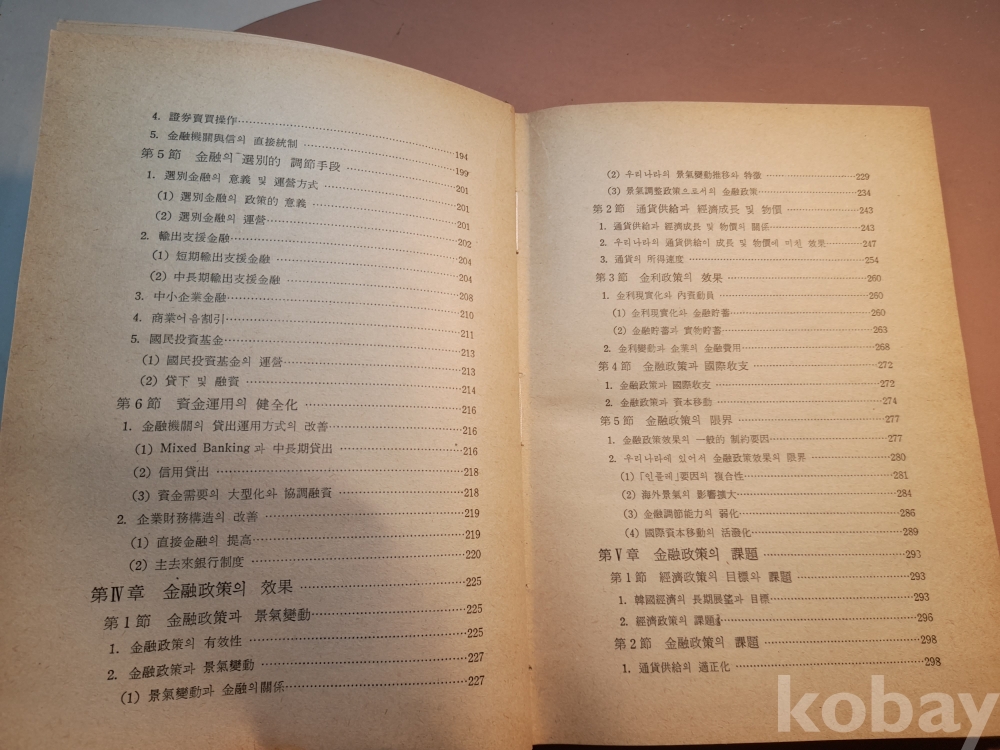 4. 證券賣買操作 194
5. 金融機關與信의 直接統制 199
第5節 金融의 選別的 調節手段 201
1. 選別金融의 意義 및 運營方式 201
(1) 選別金融의 政策的 意義 201
(2) 選別金融의 運營 202
2. 輸出支援金融 204
(1) 短期輸出支援金融 204
(2) 中長期輸出支援金融 208
3. 中小企業金融 210
4. 商業어음割引 211
5. 國民投資基金 213
(1) 國民投資基金의 運營 213
(2) 貸下 및 融資 214
第6節 資金運用의 健全化 216
1. 金融機關의 貸出運用方式의 改善 216
(1) Mixed Banking과 中長期貸出 216
(2) 信用貸出 218
(3) 資金需要의 大型化와 協調融資 218
2. 企業財務構造의 改善 219
(1) 直接金融의 提高 219
(2) 主去來銀行制度 220
第Ⅳ章 金融政策의 效果 225
第1節 金融政策과 景氣變動 225
1. 金融政策의 有效性 225
2. 金融政策과 景氣變動 227
(1) 景氣變動과 金融의關係 227
(2) 우리나라의 景氣變動推移와 特徵 229
(3) 景氣調整政策으로서의 金融政策 234
第2節 通貨供給과 經濟成長 및 物價 243
1. 通貨供給과 經濟成長 및 物價의 關係 243
2. 우리나라의 通貨供給이 成長 및 物價에 미친 效果 247
3. 通貨의 所得速度 254
第3節 金利政策의 效果 260
1. 金利現實化와 內資動員 260
(1) 金利現實化와 金融貯蓄 260
(2) 金融貯蓄과 實物貯蓄 263
2. 金利變動과 企業의 金融費用 268
第4節 金融政策과 國際收支 272
1. 金融政策과 國際收支 272
2. 金融政策과 資本移動 274
第5節 金融政策의 限界 277
1. 金融政策效果의 一般的 制約要因 277
2. 우리나라에 있어서 金融政策效果의 限界 280
(1) 「인플레」要因의 複合性 281
(2) 海外景氣의 影響擴大 284
(3) 金融調節能力의 弱化 286
(4) 國際資本移動의 活潑化 289
第Ⅴ章 金融政策의 課題 293
第1節 經濟政策의 目標와 課題 293
1. 韓國經濟의 長期展望과 目標 293
2. 經濟政策의 課題 296
第2節 金融政策의 課題 298
1. 通貨供給의 適正化 298
kobay